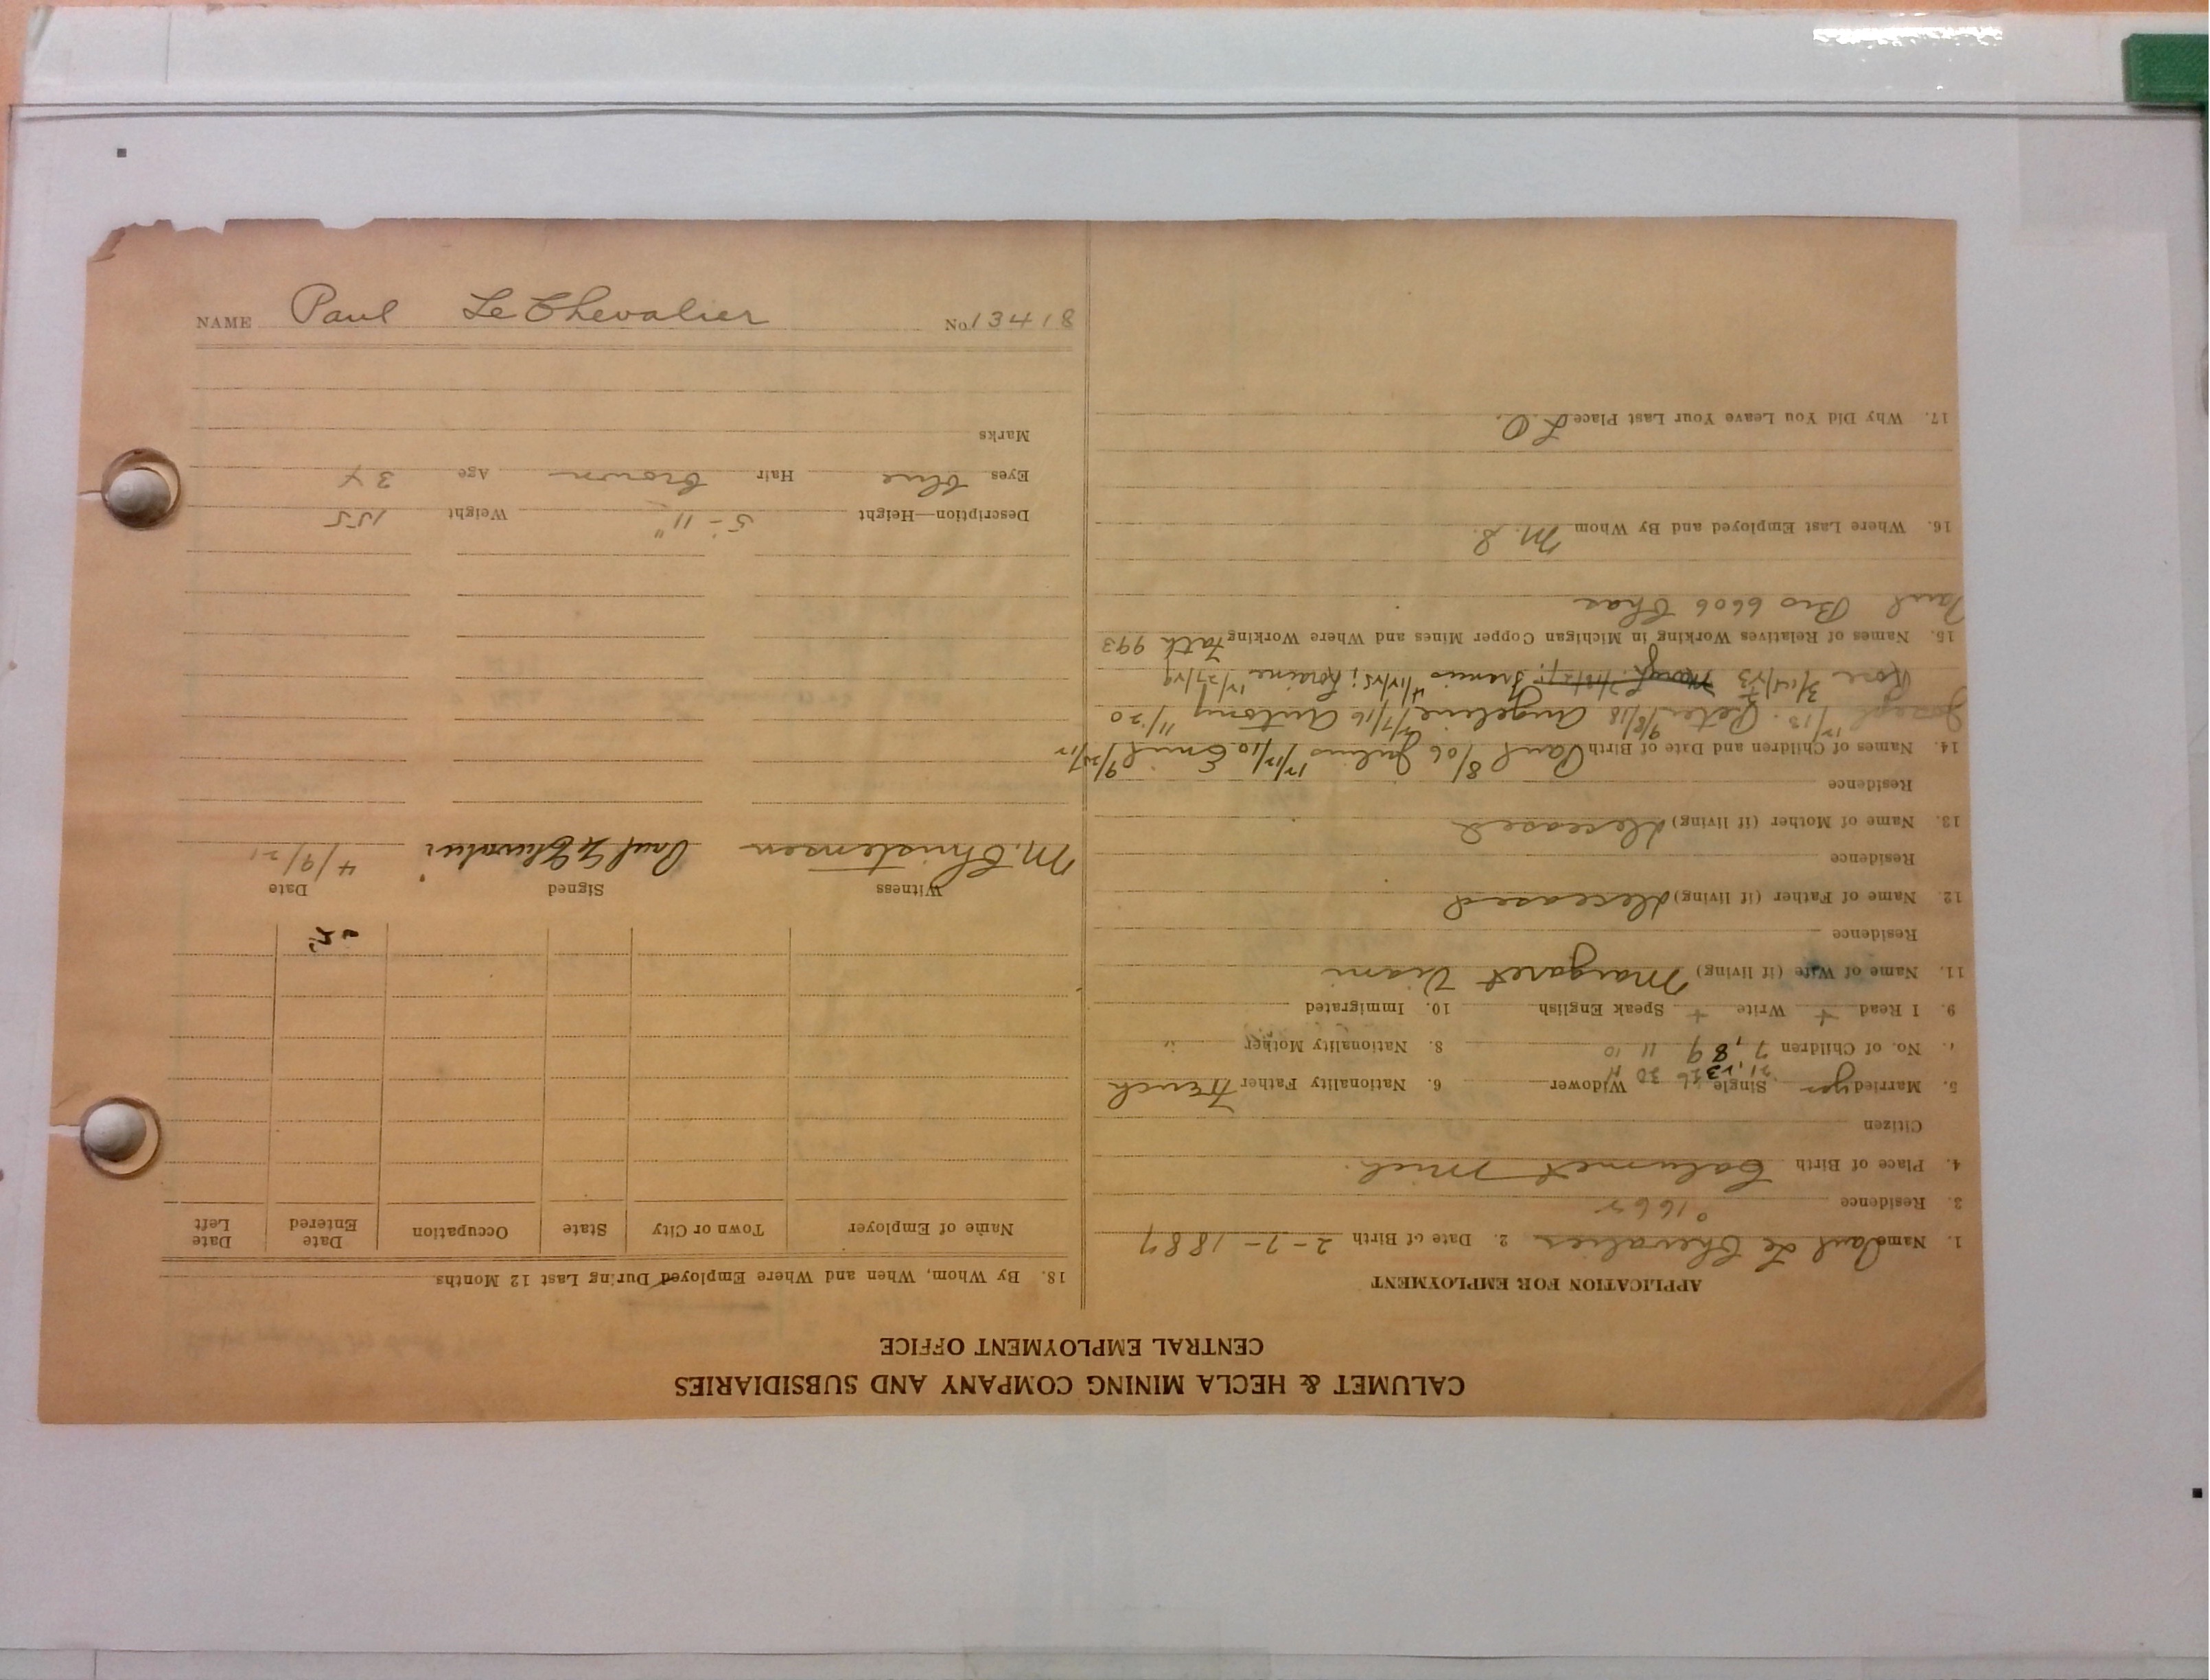 CALUMET & HECLA MINING COMPANY AND SUBSIDIARIES
CENTRAL EMPLOYMENT OFFICE
APPLICATION FOR EMPLOYMENT
1. Name Paul Le Chevalier 2. Date of Birth 2-7-1887
3. Residence 1665
4. Place of Birth Calumet Mich.
Citizen
5. Married yes Single Widower 6. Nationality Father French
7. No. of Children 7, 8, 9 11 10 8. Nationality Mother "
9. I Read + Write + Speak English 10. Immigrated
11. Name of Wife (if living) Margaret
Residence
12. Name of Father (if living) deceased
Residence
13. Name of Mother (if living) deceased
Residence
14. Names of Children and Date of Birth Paul 8/06 Julius 12/12/10 Emil
Joseph 12/13. Peter 9/8/18 Angeline 2/7/16 Antony 11/20
Rose 3/14/23 Francis 4/12/25; Loraine 12/27/29
15. Names of Relatives Working in Michigan Copper Mines and Where Working Fath 993
Paul Bro 6606 Chas
16. Where Last Employed and By Whom M. S.
17. Why Did You Leave Your Last Place L O.
18. By Whom, When and Where Employed During Last 12 Months
Name of Employer Town or City State Occupation Date Entered Date Left
Witness Signed Date
M. Christensen Paul Le Chevalier 4/9/21
Description—Height 5-11" Weight 155
Eyes blue Hair brown Age 34
Marks
NAME Paul Le Chevalier No. 13418